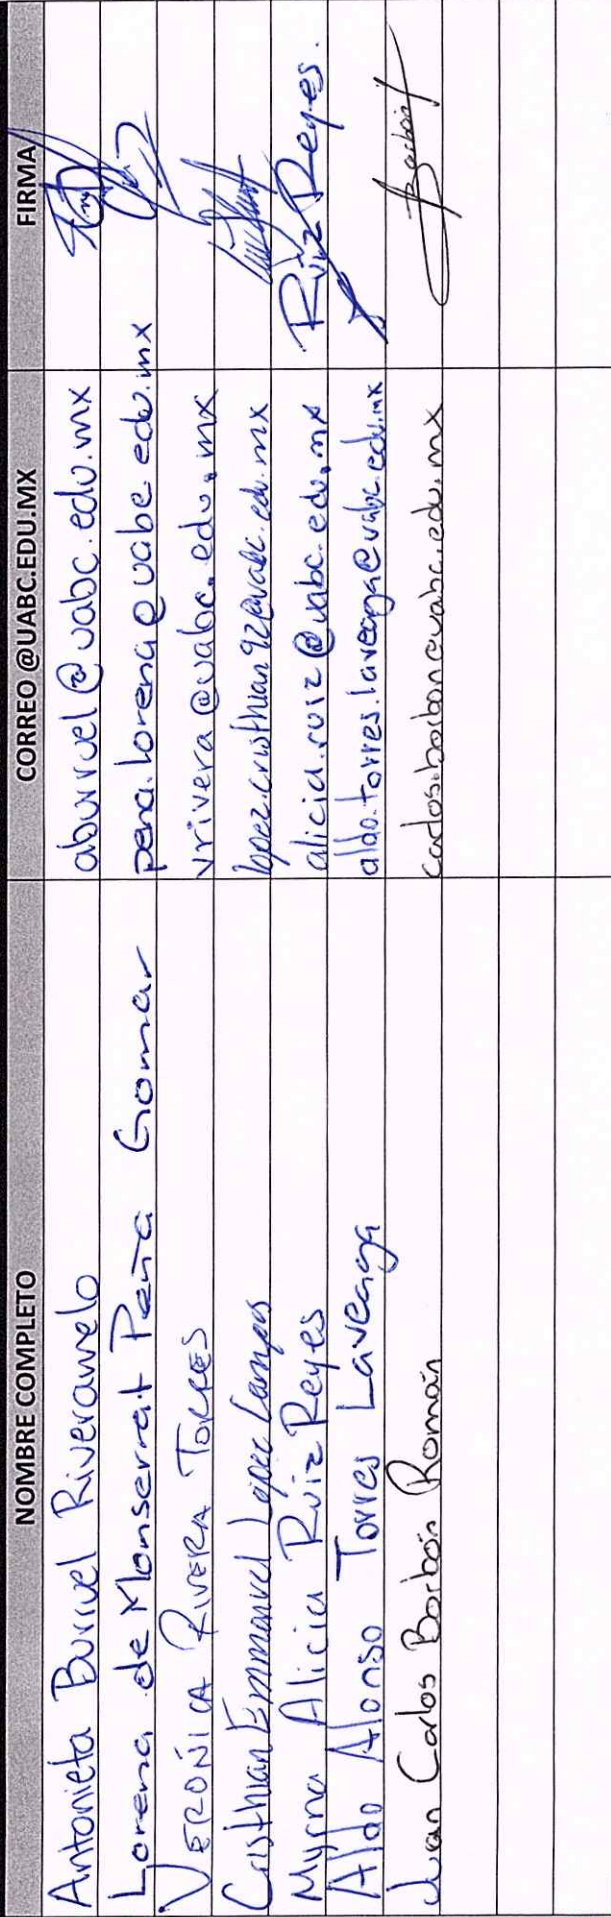 NOMBRE COMPLETO CORREO @UABC.EDU.MX FIRMA
Antonieta Burruel aburruel@uabc.edu.mx
Lorena de Monserrat Peña Gomar pena.lorena@uabc.edu.mx
VERÓNICA RIVERA TORRES vrivera@uabc.edu.mx
Cristhian Emmanuel López Campos lopez.cristhian92@uabc.edu.mx
Myrna Alicia Ruiz Reyes alicia.ruiz@uabc.edu.mx Ruiz Reyes.
Aldo Alonso Torres Laveaga aldo.torres.laveaga@uabc.edu.mx
Juan Carlos Borbón Román carlos.borbon@uabc.edu.mx